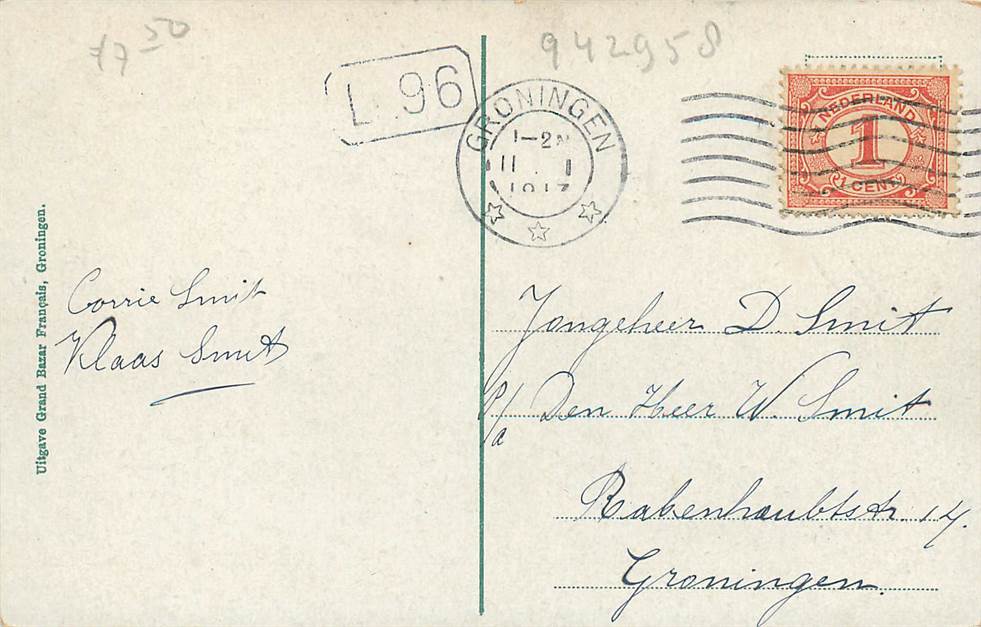 f7 50
942958
L. 96
GRONINGEN
1-2N
11 . 1
1917
NEDERLAND
1
1 CENT
Uitgave Grand Bazar Français, Groningen.
Corrie Smit
Klaas Smit
Jongeheer D. Smit
P/a Den Heer W. Smit
Rabenhaubtstr. 14.
Groningen.